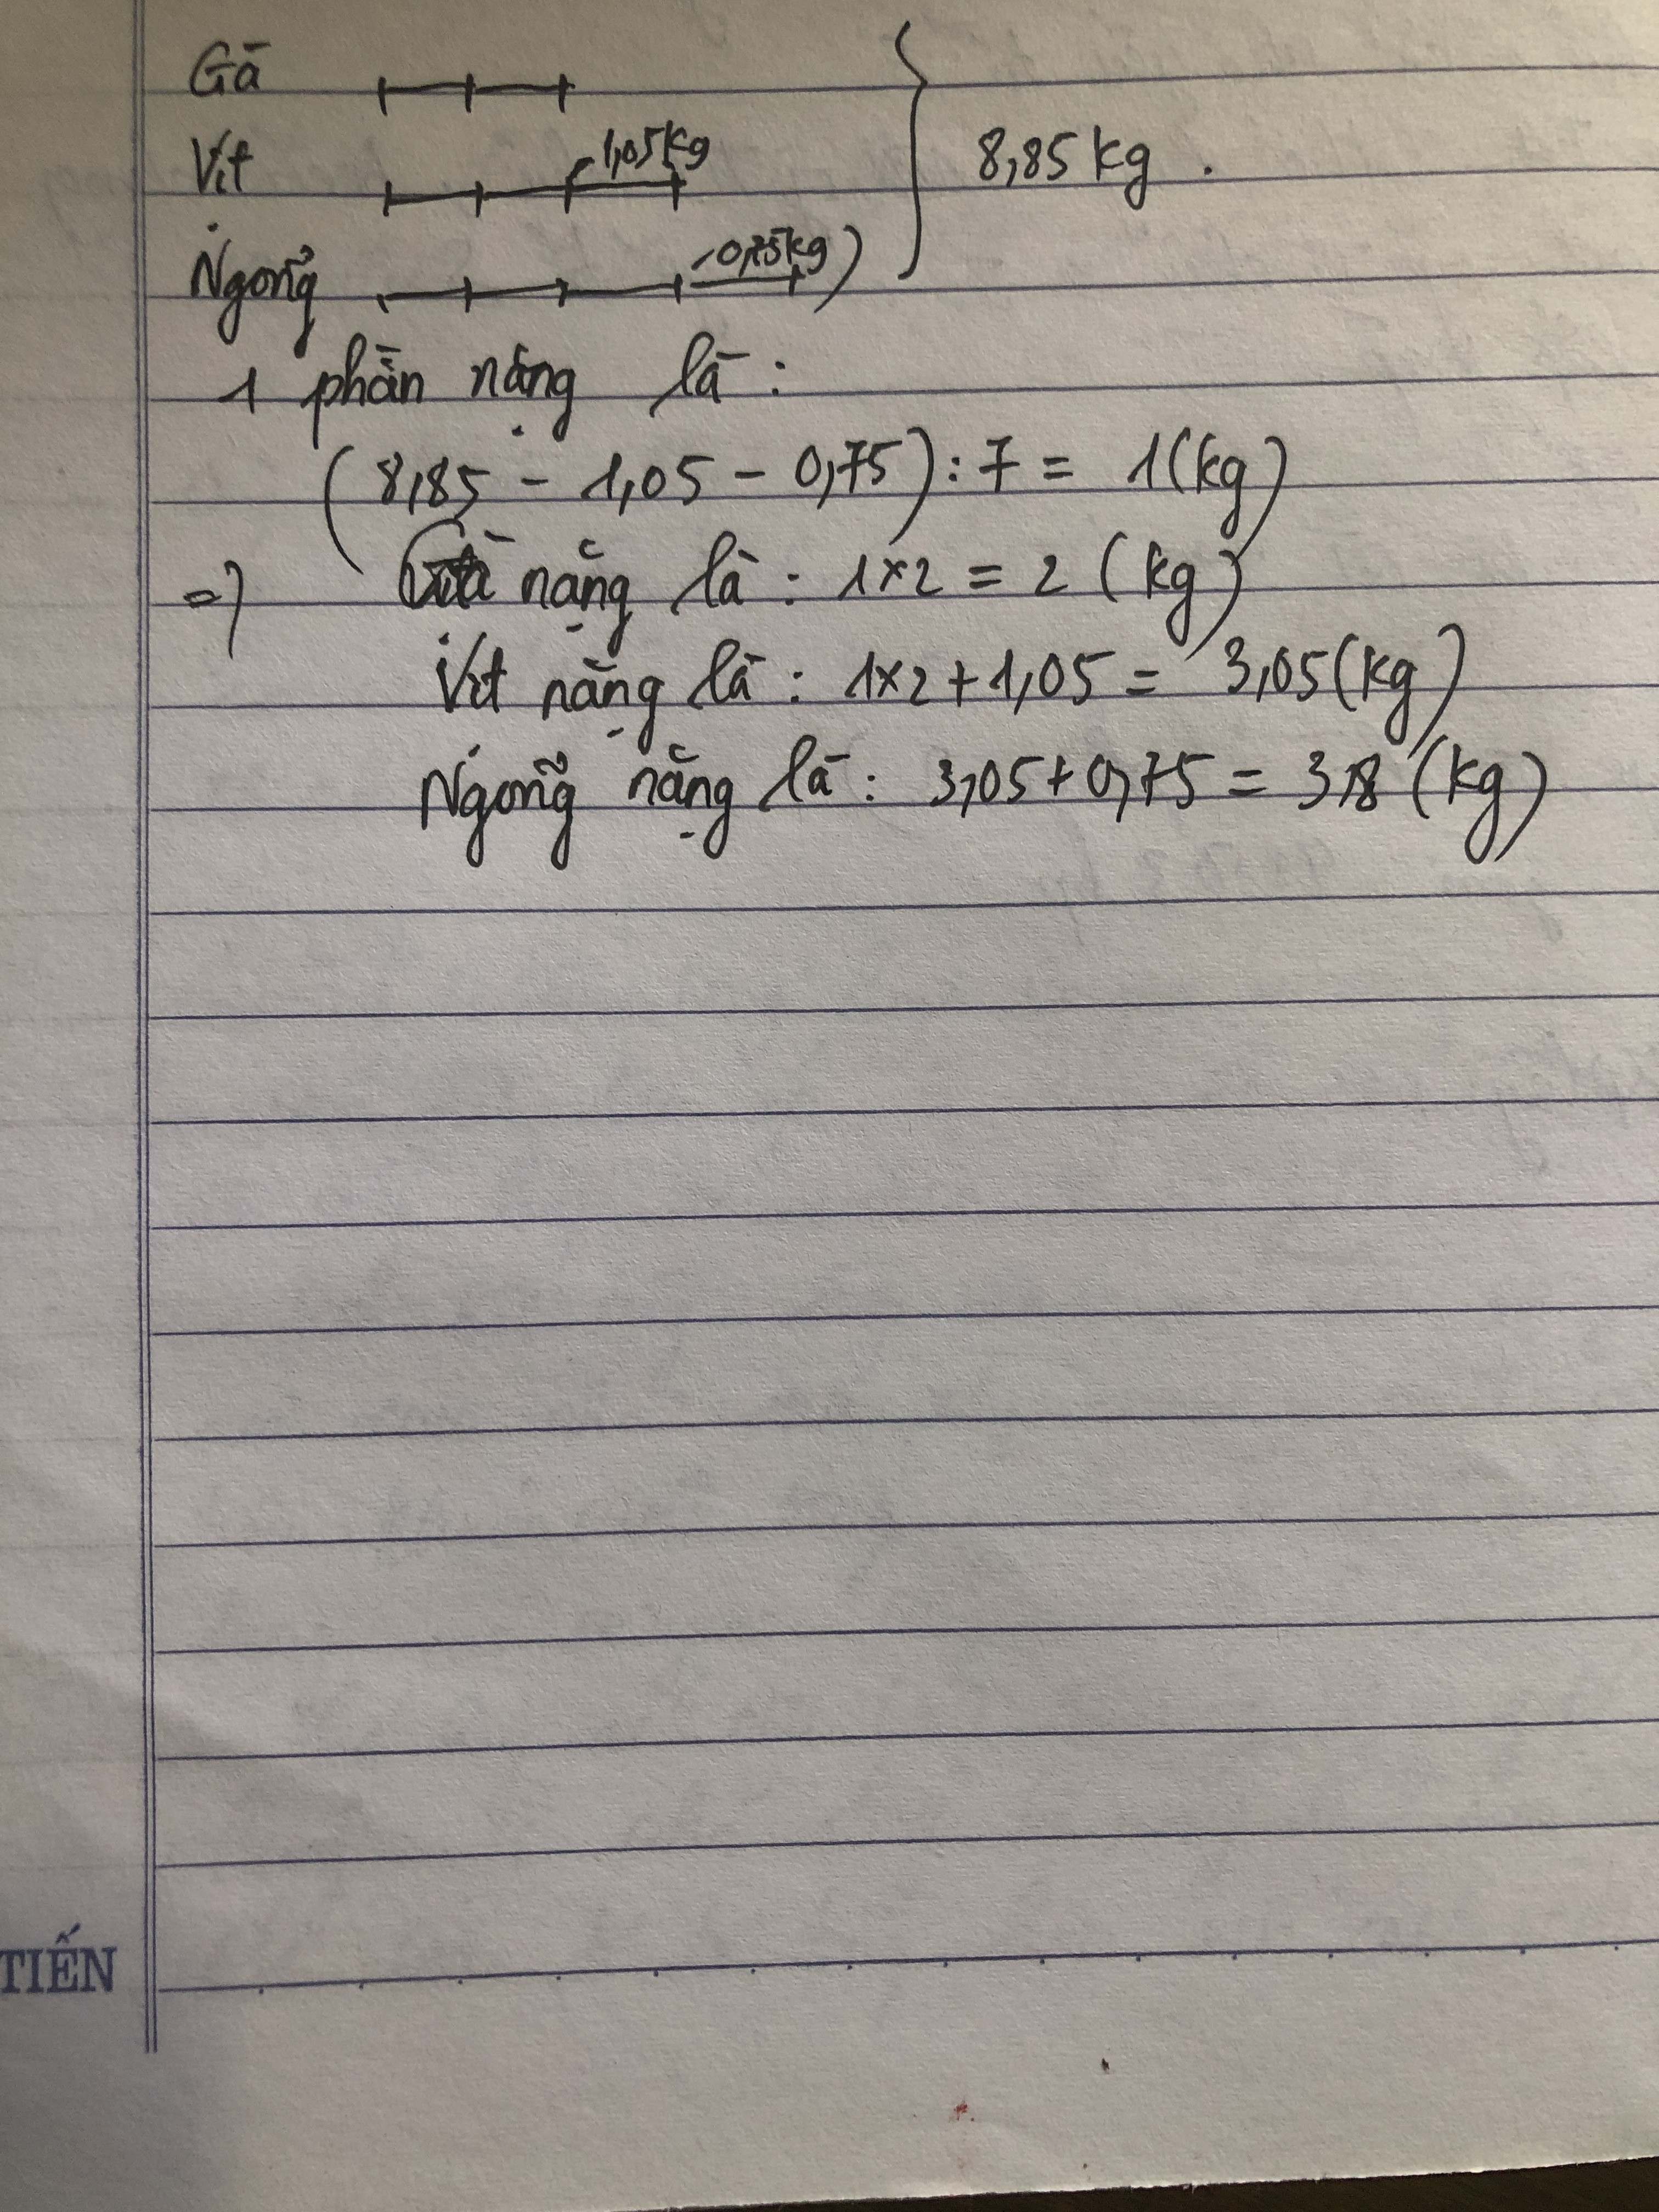 Gà
1,05kg
Vịt
8,85 kg.
0,75kg
Ngỗng
1 phần nặng là:
(8,85 - 1,05 - 0,75) : 7 = 1(kg)
=> Gà nặng là: 1x2 = 2 (kg)
Vịt nặng là: 1x2 + 1,05 = 3,05(kg)
Ngỗng nặng là: 3,05 + 0,75 = 3,8 (kg)
TIẾN